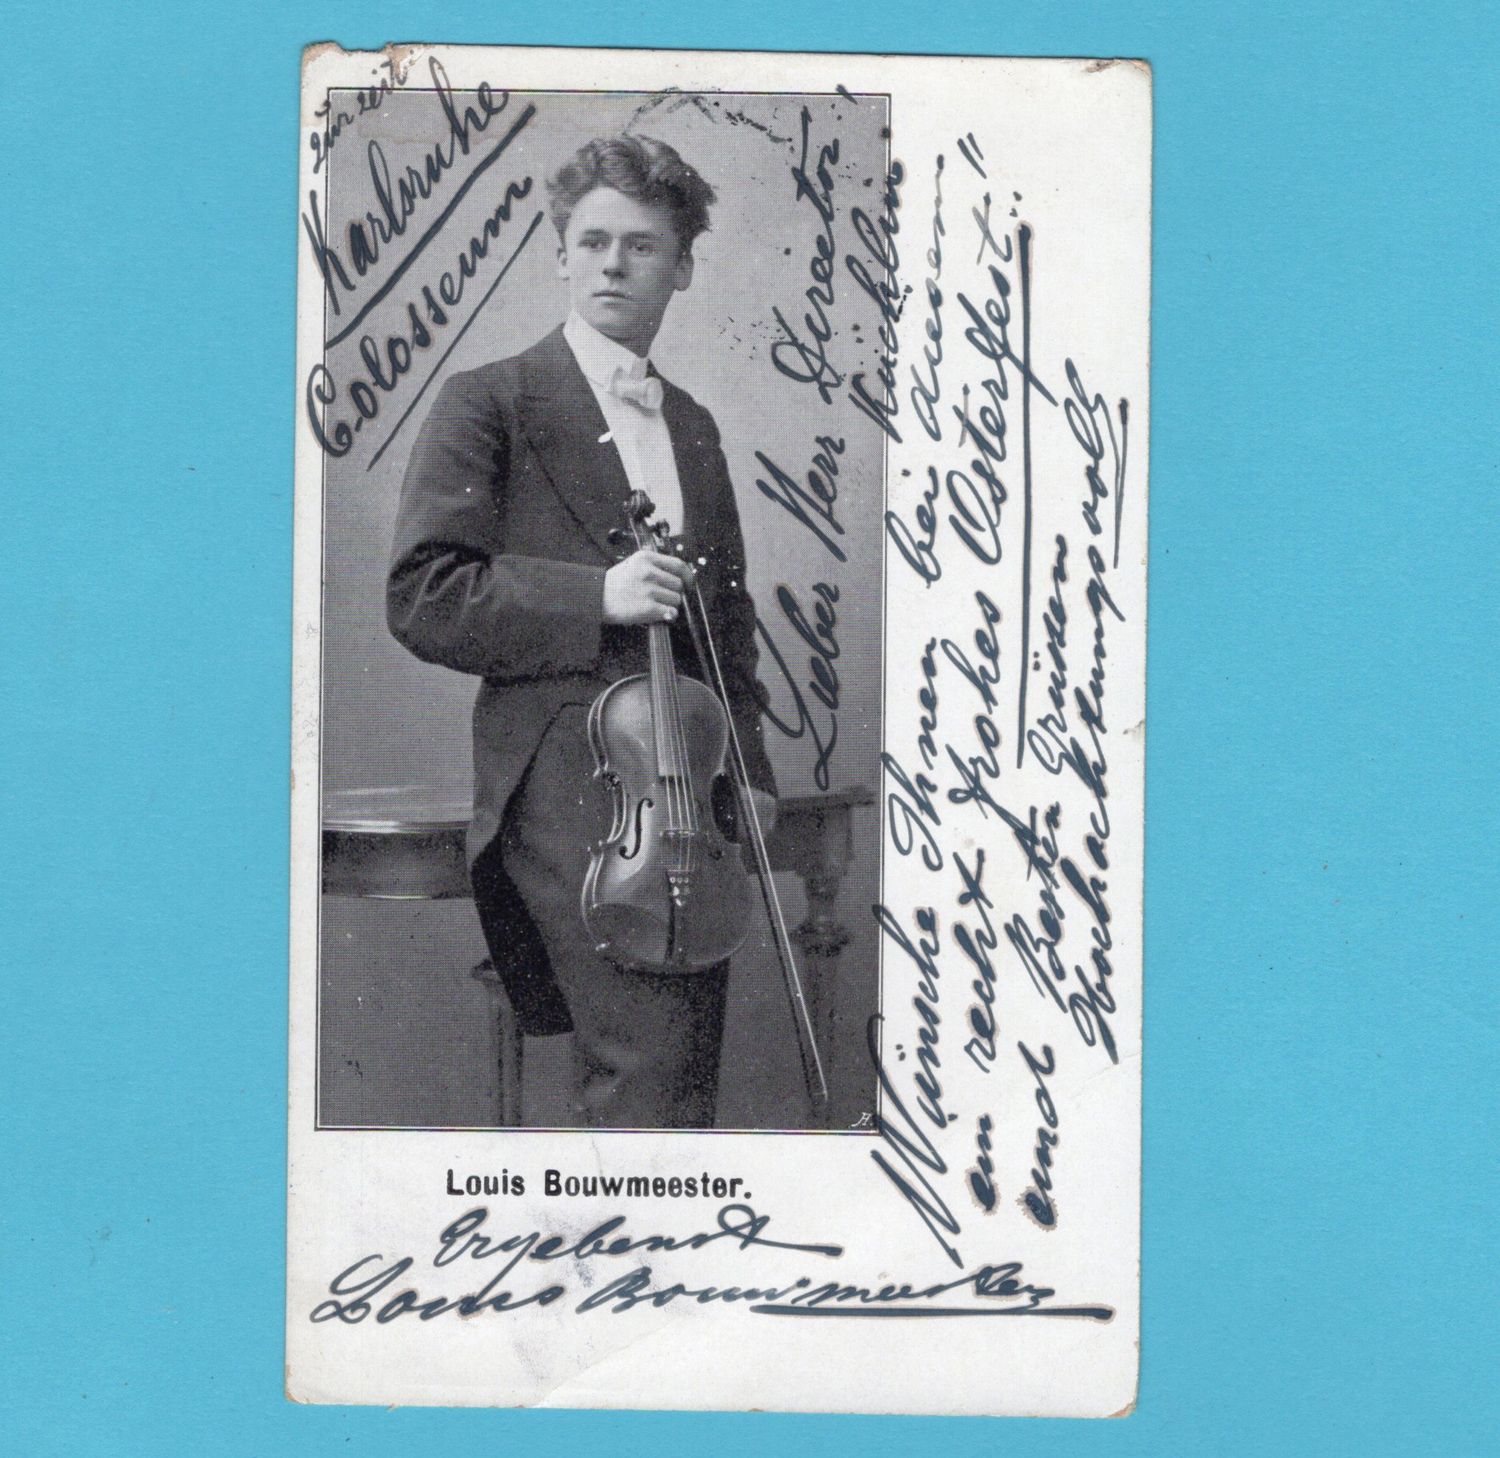 zur zeit
Karlsruhe
Colosseum
Lieber Herr Director!
Küchlin
Wünsche Ihnen bei diesem
ein recht frohes Osterfest."
und Besten Grüssen
Hochachtungsvoll
A.
Louis Bouwmeester.
Ergebenst
Louis Bouwmeester